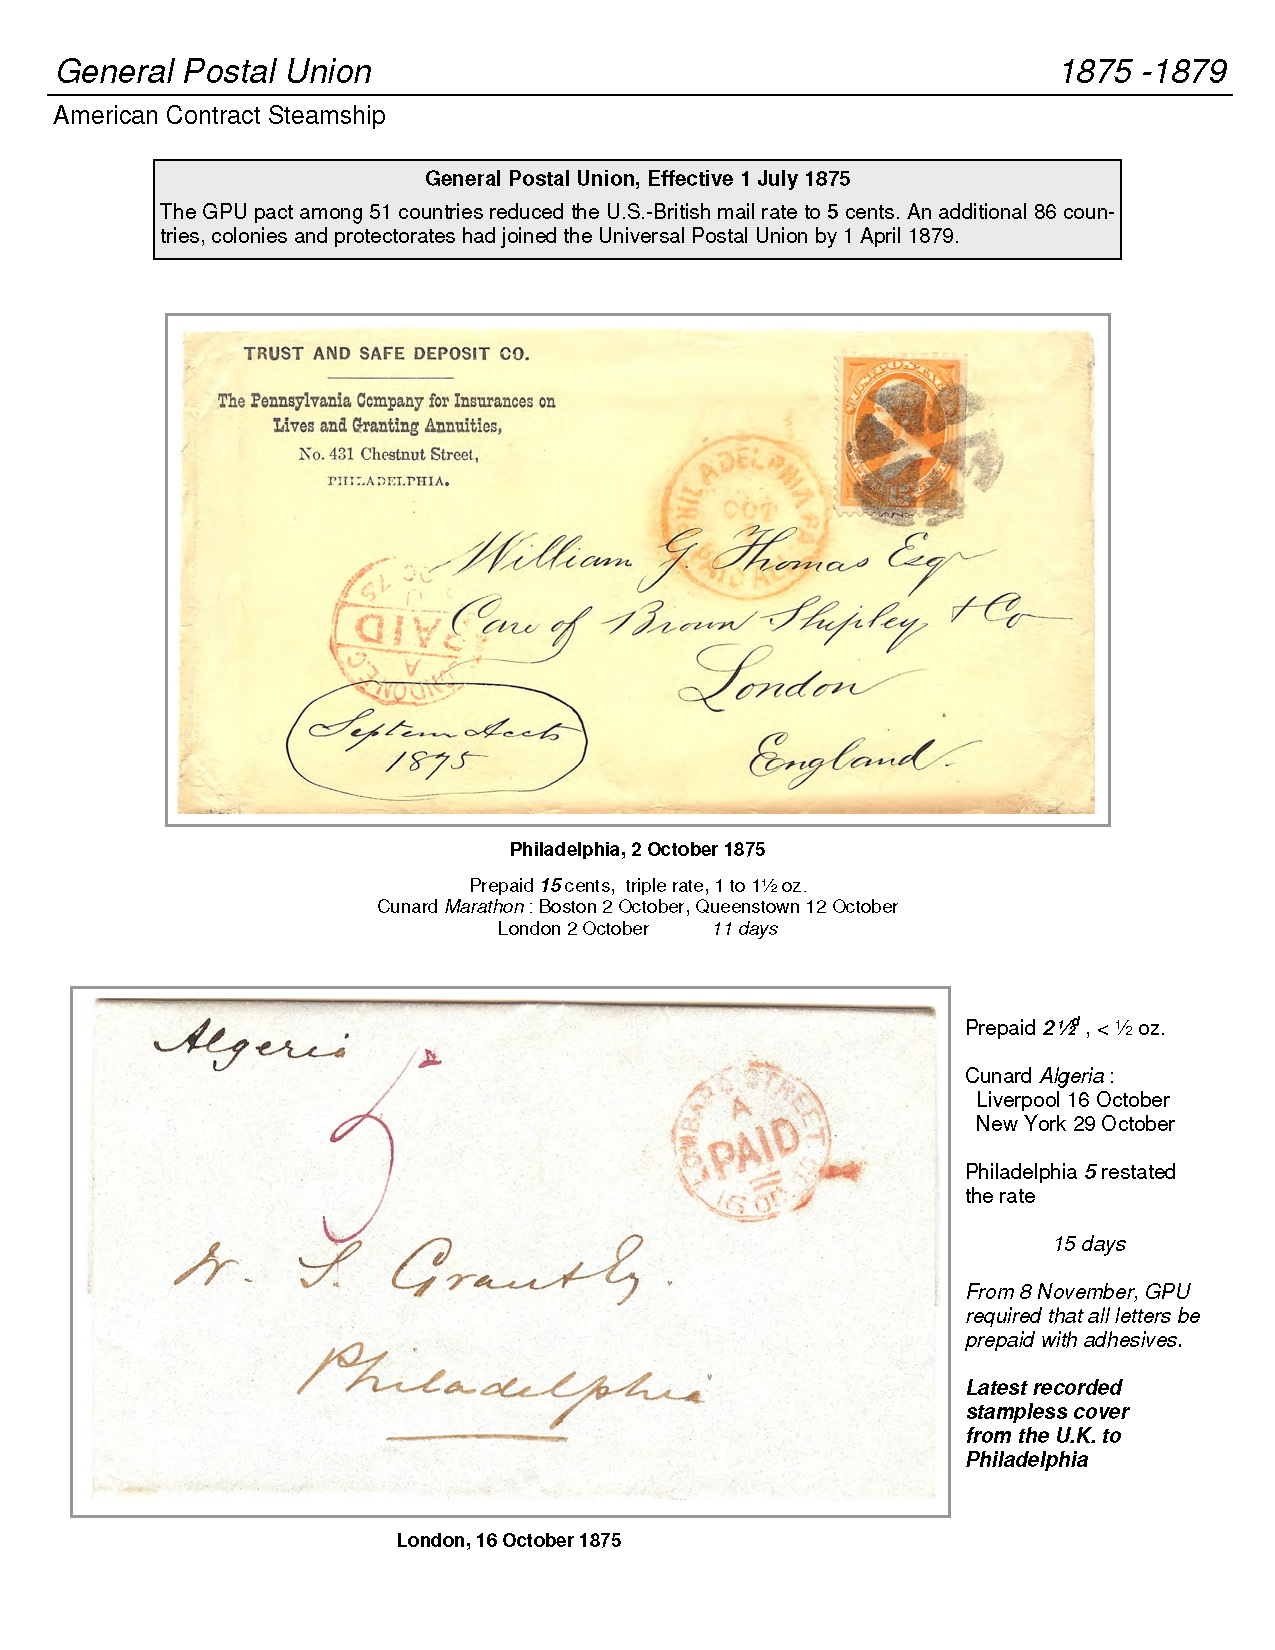 General Postal Union 1875 -1879
American Contract Steamship
General Postal Union, Effective 1 July 1875
The GPU pact among 51 countries reduced the U.S.-British mail rate to 5 cents. An additional 86 coun-
tries, colonies and protectorates had joined the Universal Postal Union by 1 April 1879.
TRUST AND SAFE DEPOSIT CO.
The Pennsylvania Company for Insurances on
Lives and Granting Annuities,
No. 431 Chestnut Street,
PHILADELPHIA.
PHILADELPHIA PA
OCT
PAID ALL
William G. Thomas Esqr
Care of Brown Shipley & Co
London
England.
OC 75
PAID
A
LONDON E.C
Septem Accts
1875
Philadelphia, 2 October 1875
Prepaid 15 cents, triple rate, 1 to 1½ oz.
Cunard Marathon : Boston 2 October, Queenstown 12 October
London 2 October 11 days
Algeria
5
LOMBARD STREET
A
PAID
16 OC 75
W. S. Grantly.
Philadelphia
London, 16 October 1875
Prepaid 2½d , < ½ oz.
Cunard Algeria :
Liverpool 16 October
New York 29 October
Philadelphia 5 restated
the rate
15 days
From 8 November, GPU
required that all letters be
prepaid with adhesives.
Latest recorded
stampless cover
from the U.K. to
Philadelphia